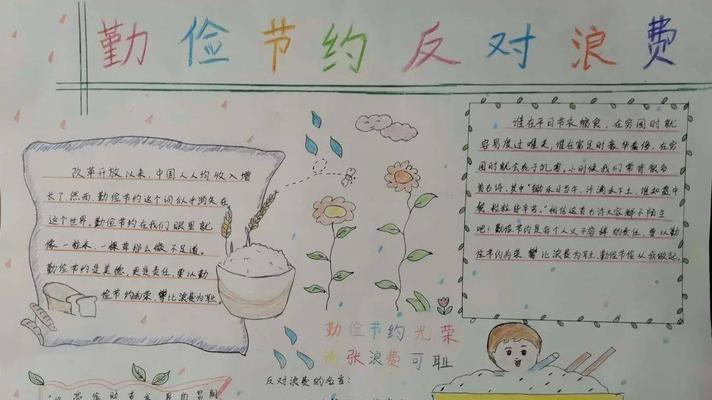 勤俭节约反对浪费
改革开放以来,中国人人均收入增
长了.然而,勤俭节约这个词似乎消失在
这个世界,勤俭节约在我们眼里就
像一粒米、一棵草那么微不足道。
勤俭节约是美德,更是责任,要以勤
俭节约为荣,铺张浪费为耻
谁在平日节衣缩食,在穷困时就
容易度过难关,谁在富足时豪华奢侈,在穷
困时就会死于饥寒,小时候我们常背
首古诗,其中"锄禾日当午,汗滴禾下土,谁知盘中
餐,粒粒皆辛苦。"相信这首古诗人家都不陌生
吧!勤俭节约是每个人义不容辞的责任,要以勤
俭节约为荣,浪费为耻,勤俭节俭从我做起。
勤俭节约光荣
张浪费可耻
反对浪费的名言: